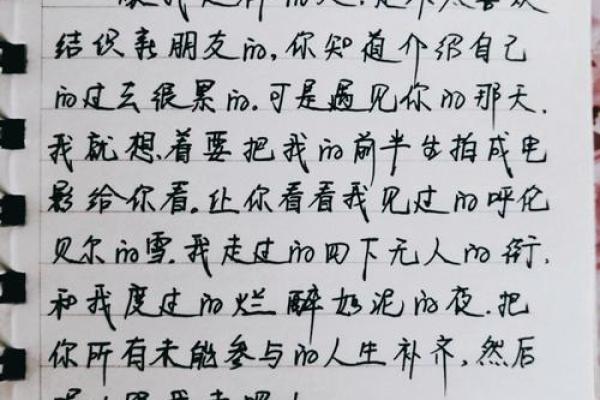 结识新朋友的,你知道介绍自己
的过去很累的.可是遇见你的那天.
我就想着要把我的前半生拍成电
影给你看。让你看看我见过的呼伦
贝尔的雪.我走过的四下无人的街.
和我度过的烂醉如泥的夜.把
你所有未能参与的人生补齐,然后